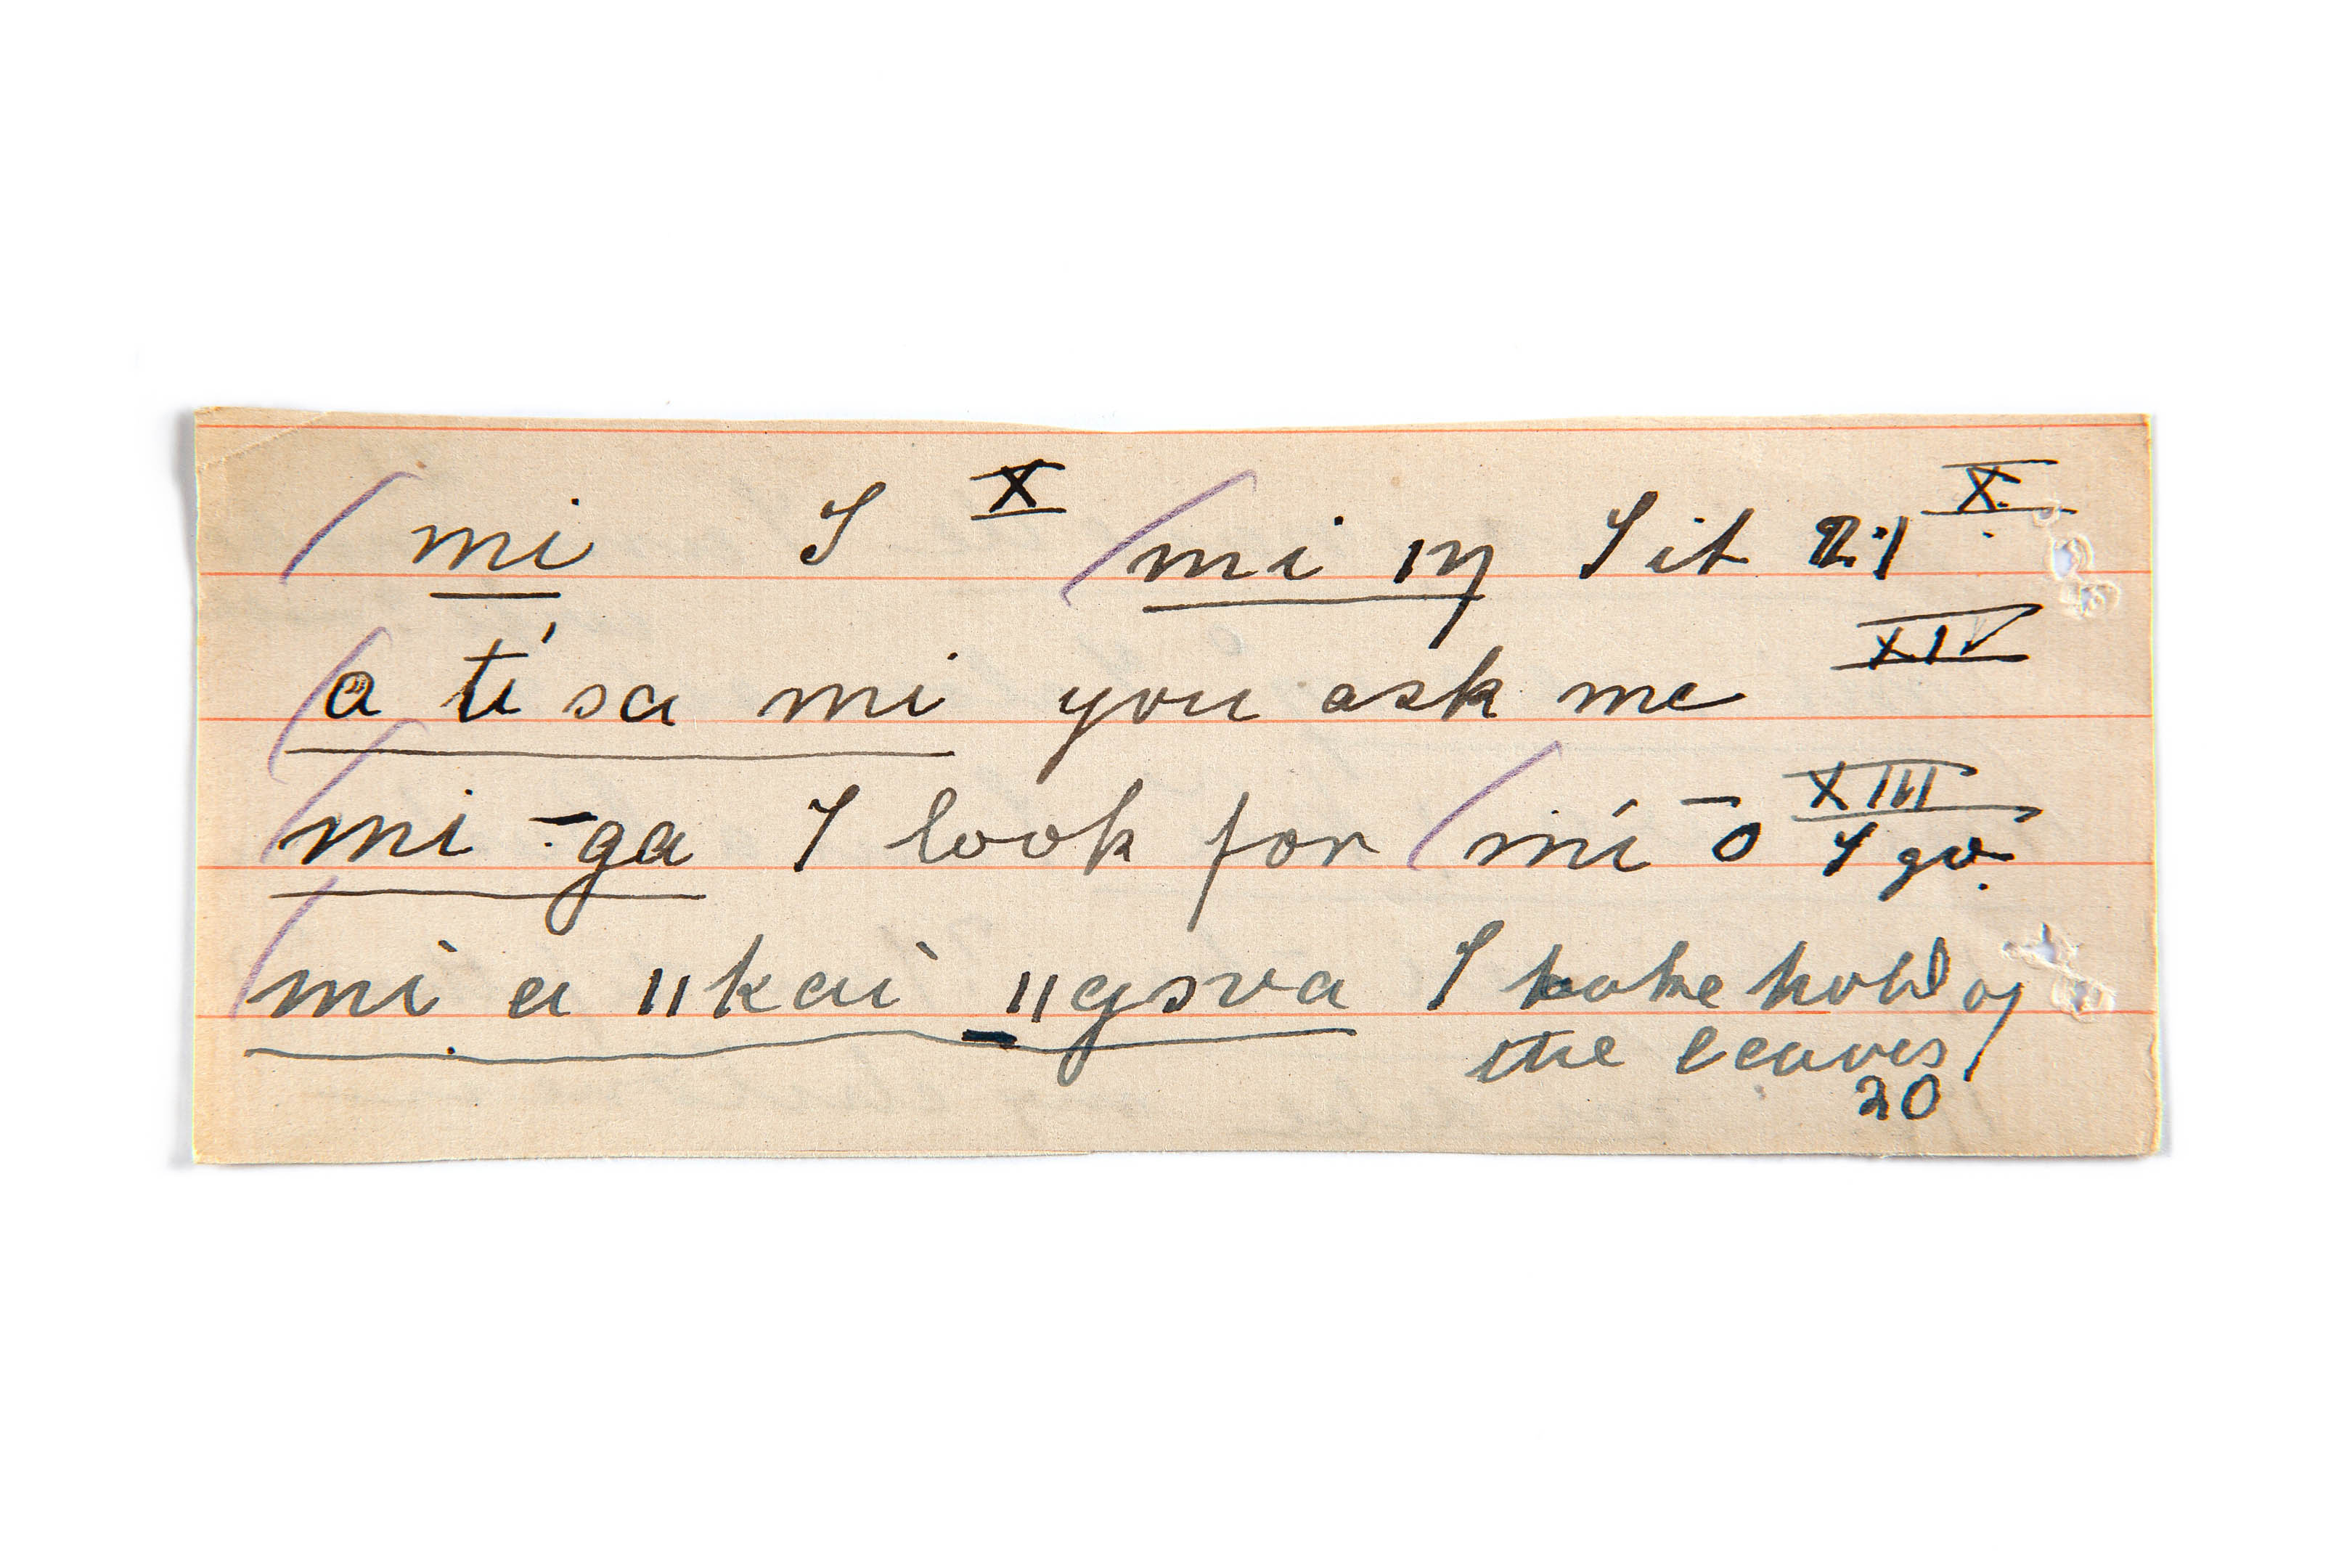 mi I X mi ıŋ I sit 21 X.
a tí sa mi you ask me XIV
mi -̄ga I look for mí ō I go. XIII
mi a ǁkai ǁgsva I take hold of
the leaves
20